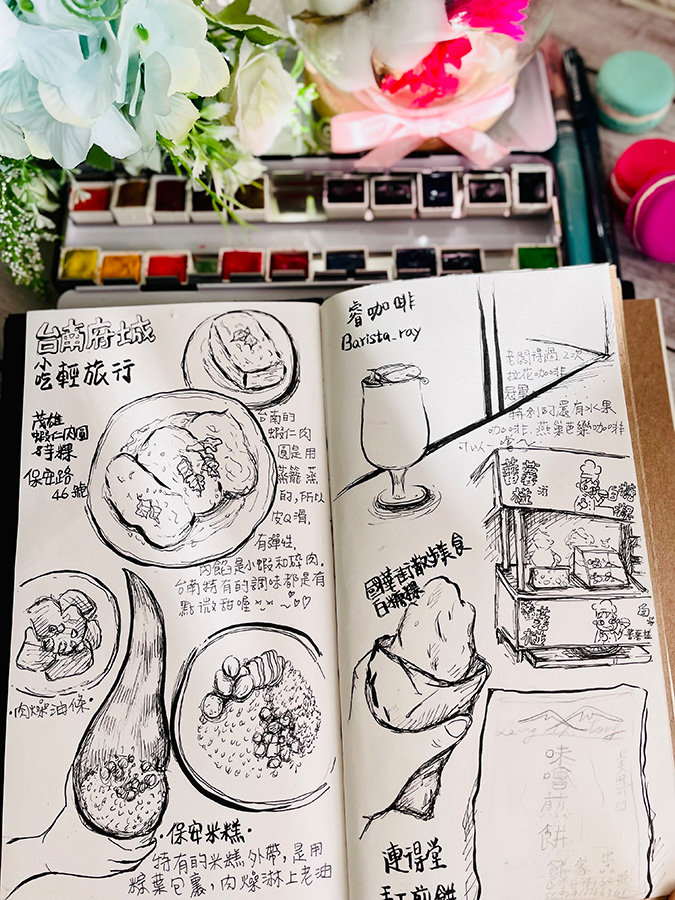 台南府城
小吃輕旅行
茂雄
蝦仁肉圓
保安路
46號
台南的
蝦仁肉
圓是用
蒸籠蒸
的,所以
皮Q滑,
有彈性,
內餡是小蝦和碎肉.
台南特有的調味都是有
點微甜喔~
·肉燥油條·
·保安米糕·
特有的米糕外帶,是用
粽葉包裹,肉燥淋上老油
睿咖啡
Barista_ray
老闆得過2次
拉花咖啡
冠軍
特別的還有水果
咖啡,燕巢芭樂咖啡
可以一嚐~
國華街散步美食
白糖粿
味噌煎餅
連得堂
手工煎餅